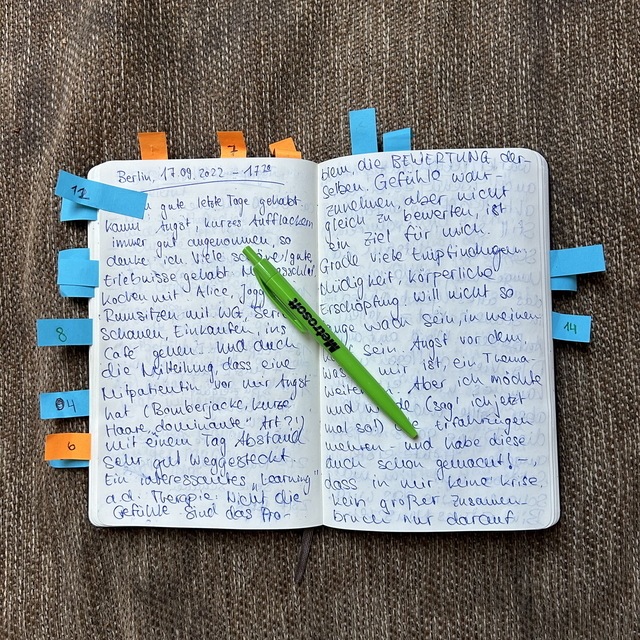 Berlin, 17.09.2022 – 17
gute letzte Tage gehabt.
Kaum Angst, kurzes Aufflackern
immer gut angenommen, so
denke ich. Viele schöne/gute
Erlebnisse gehabt
Kochen mit Alice,
Rumsitzen mit WG,
schauen, Einkaufen, ins
Café gehen - und auch
die Mitteilung, dass eine
Mitpatientin vor mir Angst
hat (Bomberjacke, kurze
Haare, "dominante" Art?!)
mit einem Tag Abstand
sehr gut weggesteckt.
Ein interessantes "Learning"
a.d. Therapie: Nicht die
Gefühle sind das Pro-
blem, die BEWERTUNG der-
selben. Gefühle wahr-
zunehmen aber nicht
gleich zu bewerten, ist
ein Ziel für mich.
Grade viele Empfindungen
Müdigkeit, körperliche
Erschöpfung, will nicht so
lange wach sein, in meinen
sein. Angst vor dem,
was mir ist, ein Thema-
weiterhin. Aber ich möchte
und werde (sag' ich jetzt
mal so!) die Erfahrungen
mehren - und habe diese
auch schon gemacht! -,
dass in mir keine Krise,
kein großer Zusammen-
bruch nur darauf
Microsoft
11
7
8
04
6
14